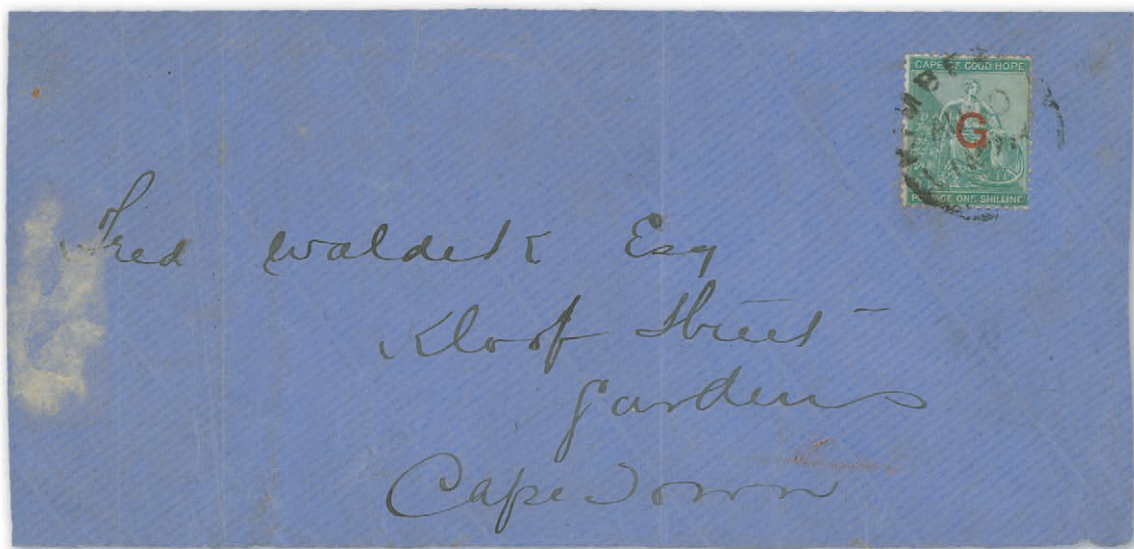 CAPE OF GOOD HOPE
G
POSTAGE ONE SHILLING
Fred Waldek Esq
Kloof Street
Gardens
Cape Town